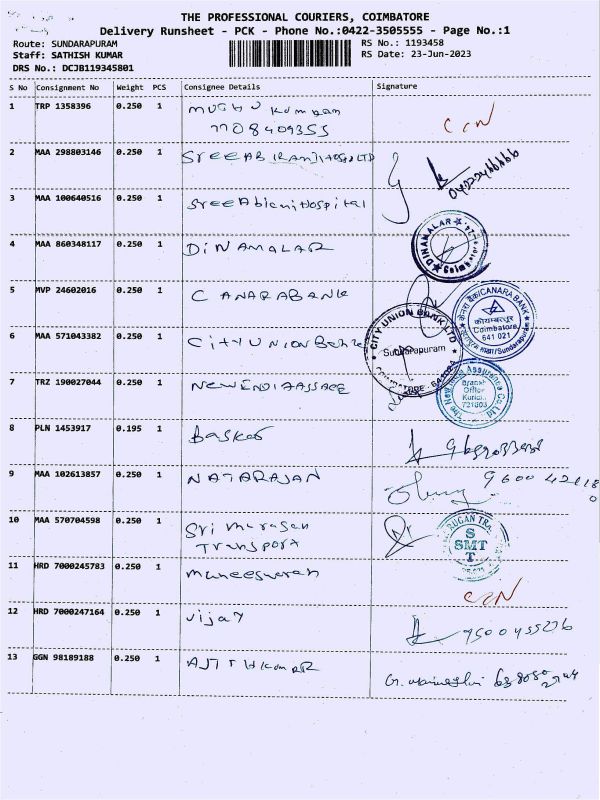 THE PROFESSIONAL COURIERS, COIMBATORE
Delivery Runsheet - PCK - Phone No.:0422-3505555 - Page No.:1
Route: SUNDARAPURAM
RS No.: 1193458
Staff: SATHISH KUMAR
RS Date: 23-Jun-2023
DRS No.: DCJB119345801
S No Consignment No Weight PCS Consignee Details Signature
1 TRP 1358396 0.250 1
7708409355
2 MAA 298803146 0.250 1
3 MAA 100640516 0.250 1 Sree Abirami Hospital
DINAMALAR
4 MAA 860348117 0.250 1 DINAMALAR
Coimbatore
5 MVP 24602016 0.250 1 CANARA BANK
केनरा बैंक/CANARA BANK
कोयम्बत्तूर
Coimbatore
641 021
शाखा/Sundarapuram
6 MAA 571043382 0.250 1 City UNION Bank
CITY UNION BANK LTD
Sundarapuram
7 TRZ 190027044 0.250 1
The New India Assurance Co. Ltd
Branch
Office
721603
8 PLN 1453917 0.195 1 Baskar
9 MAA 102613857 0.250 1 NATARAJAN
10 MAA 570704598 0.250 1 Sri Murugan
Transport
S
SMT
T
11 HRD 7000245783 0.250 1 Muneeswaran
12 HRD 7000247164 0.250 1 Vijay
13 GGN 98189188 0.250 1 AJITHKUMAR